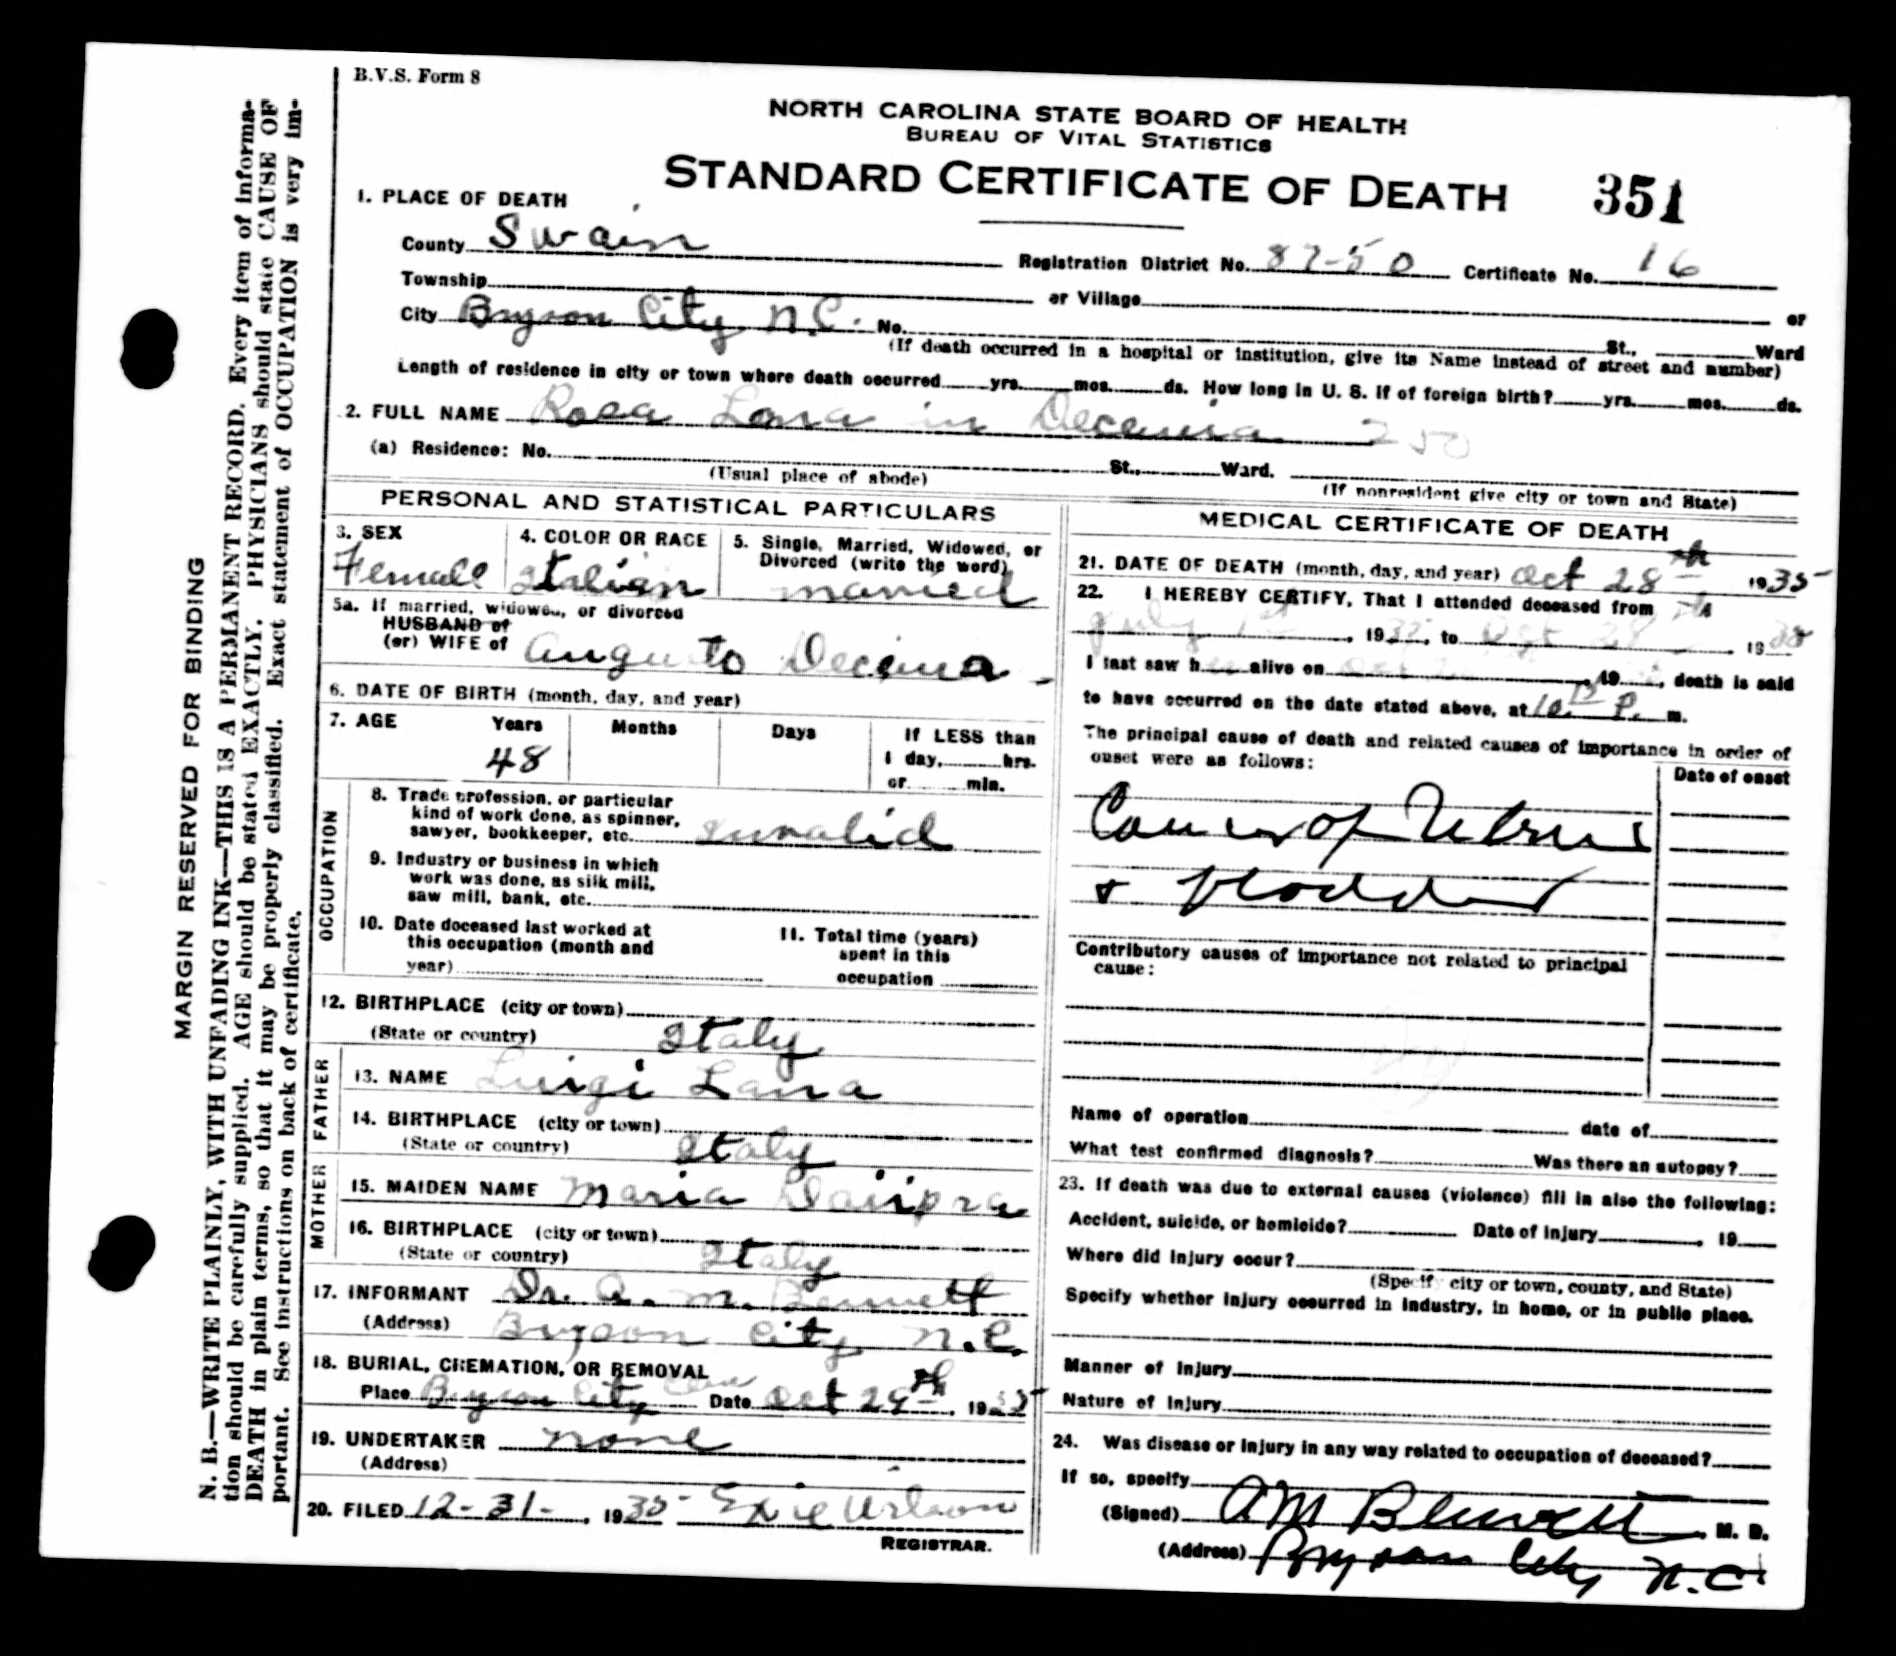 B.V.S. Form 8
NORTH CAROLINA STATE BOARD OF HEALTH
BUREAU OF VITAL STATISTICS
STANDARD CERTIFICATE OF DEATH 351
1. PLACE OF DEATH
County Swain Registration District No. 87-50 Certificate No. 16
Township or Village or
City Bryson City N.C. No. St., Ward
(If death occurred in a hospital or institution, give its Name instead of street and number)
Length of residence in city or town where death occurred yrs. mos. ds. How long in U. S. if of foreign birth? yrs. mos. ds.
2. FULL NAME Rosa Lana in Deceina 250
(a) Residence: No. St., Ward.
(Usual place of abode) (If nonresident give city or town and State)
PERSONAL AND STATISTICAL PARTICULARS
3. SEX Female
4. COLOR OR RACE Italian
5. Single, Married, Widowed, or Divorced (write the word) married
5a. If married, widowed, or divorced
HUSBAND of
(or) WIFE of Augusto Deceina
6. DATE OF BIRTH (month, day, and year)
7. AGE Years Months Days If LESS than
48 1 day, hrs.
or min.
OCCUPATION
8. Trade profession, or particular
kind of work done, as spinner,
sawyer, bookkeeper, etc. Invalid
9. Industry or business in which
work was done, as silk mill,
saw mill, bank, etc.
10. Date deceased last worked at
this occupation (month and
year)
11. Total time (years)
spent in this
occupation
12. BIRTHPLACE (city or town)
(State or country) Italy
FATHER
13. NAME Luigi Lana
14. BIRTHPLACE (city or town)
(State or country) Italy
MOTHER
15. MAIDEN NAME Maria
16. BIRTHPLACE (city or town)
(State or country) Italy
17. INFORMANT Dr. A. M. Bennett
(Address) Bryson City N.C.
18. BURIAL, CREMATION, OR REMOVAL
Place Bryson City Date Oct 29th, 1935
19. UNDERTAKER none
(Address)
20. FILED 12-31-, 1935 Wilson
REGISTRAR.
MEDICAL CERTIFICATE OF DEATH
21. DATE OF DEATH (month, day, and year) Oct 28th 1935
22. I HEREBY CERTIFY, That I attended deceased from
July 1st, 1935, to Oct 28th 1935
I last saw her alive on Oct, 19, death is said
to have occurred on the date stated above, at 10 15 P. m.
The principal cause of death and related causes of importance in order of
onset were as follows:
Date of onset
Cancer of Uterus
+ bladder
Contributory causes of importance not related to principal
cause:
Name of operation date of
What test confirmed diagnosis? Was there an autopsy?
23. If death was due to external causes (violence) fill in also the following:
Accident, suicide, or homicide? Date of injury, 19
Where did injury occur?
(Specify city or town, county, and State)
Specify whether injury occurred in industry, in home, or in public place.
Manner of Injury
Nature of Injury
24. Was disease or injury in any way related to occupation of deceased?
If so, specify
(Signed) AM Bennett, M. D.
(Address) Bryson City N.C.
MARGIN RESERVED FOR BINDING
N. B.—WRITE PLAINLY, WITH UNFADING INK—THIS IS A PERMANENT RECORD. Every item of informa-
tion should be carefully supplied. AGE should be stated EXACTLY. PHYSICIANS should state CAUSE OF
DEATH in plain terms, so that it may be properly classified. Exact statement of OCCUPATION is very im-
portant. See instructions on back of certificate.